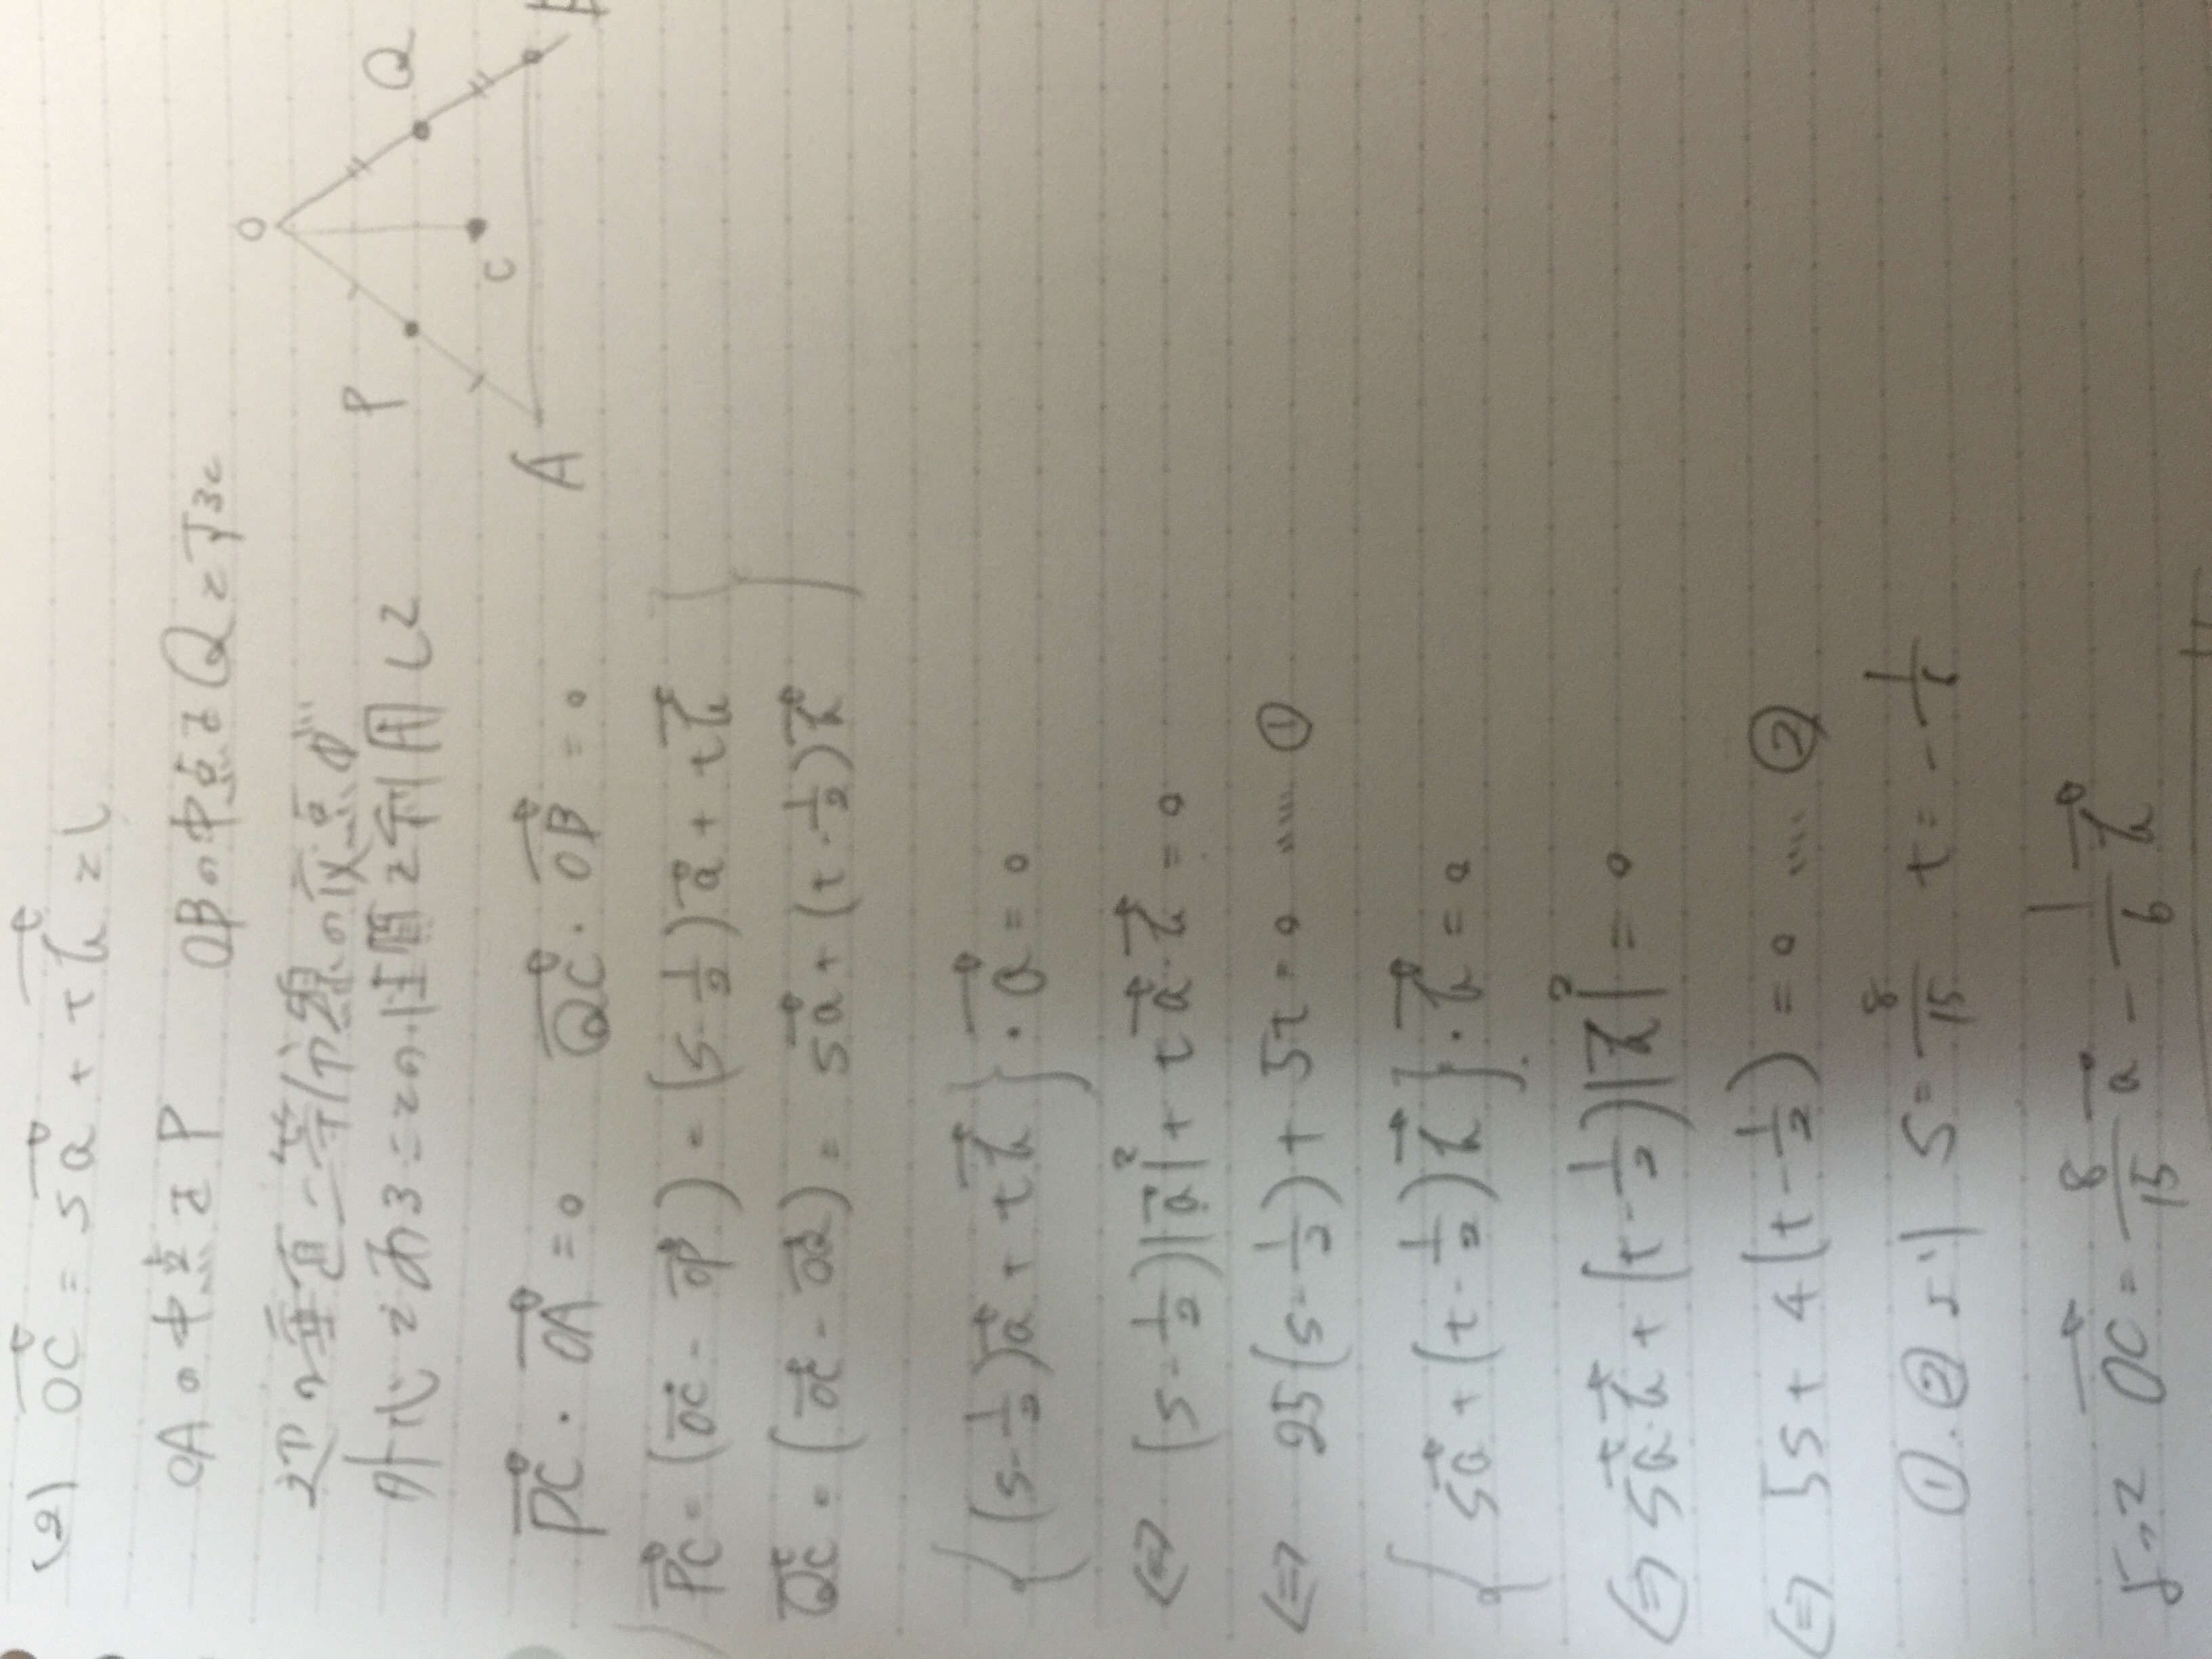 (2) OC→ = sa→ + tb→ とし
OAの中点をP OBの中点をQとする
辺の垂直二等分線の交点が
外心であることの性質を利用して
O
P
Q
C
A
PC→・OA→ = 0 QC→・OB→ = 0
PC→ = (OC→ - OP→) = (s-1/2)a→ + tb→
QC→ = (OC→ - OQ→) = sa→ + (t-1/2)b→
{(s-1/2)a→ + tb→}・a→ = 0
⇔ (s-1/2)|a→|² + ta→・b→ = 0
⇔ 25(s-1/2) + 5t = 0 …… ①
{sa→ + (t-1/2)b→}・b→ = 0
⇔ sa→・b→ + (t-1/2)|b→|² = 0
⇔ 5s + 4(t-1/2) = 0 …… ②
①.②より s = 8/15 t = -1/6
よって OC→ = 8/15 a→ - 1/6 b→